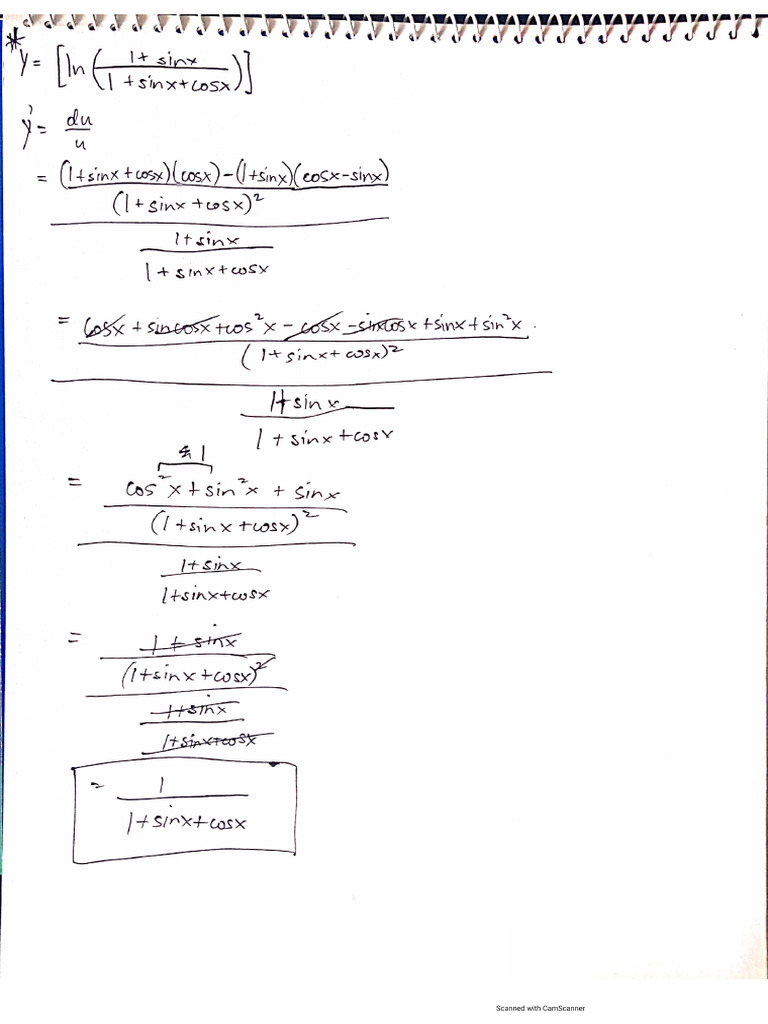 *
y = [ln(1 + sinx / 1 + sinx + cosx)]
y' = du / u
= (1+sinx+cosx)(cosx)-(1+sinx)(cosx-sinx)
(1+sinx+cosx)²
1+sinx
1+sinx+cosx
= cosx + sincosx + cos²x - cosx - sinxcosx + sinx + sin²x.
(1+sinx+cosx)²
1+sinx
1+sinx+cosx
1
= cos²x + sin²x + sinx
(1+sinx+cosx)²
1+sinx
1+sinx+cosx
= 1 + sinx
(1+sinx+cosx)²
1+sinx
1+sinx+cosx
= 1
1+sinx+cosx
Scanned with CamScanner